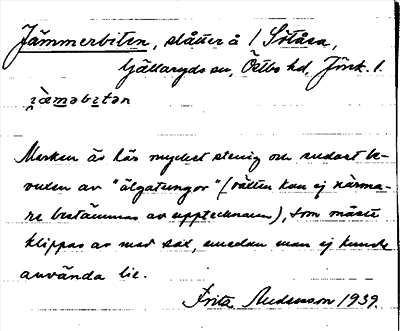 Jämmerbiten, slåtter å 1 Slåsa,
Gällaryds sn, Östbo hd, Jönk. l.
jä̀mərbɪtən
Marken är här mycket stenig och endast be-
vuxen av "älgatungor" (växten kan ej närma-
re bestämmas av upptecknaren), som måste
klippas av med sax, emedan man ej kunde
använda lie.
Frits Andersson 1939.